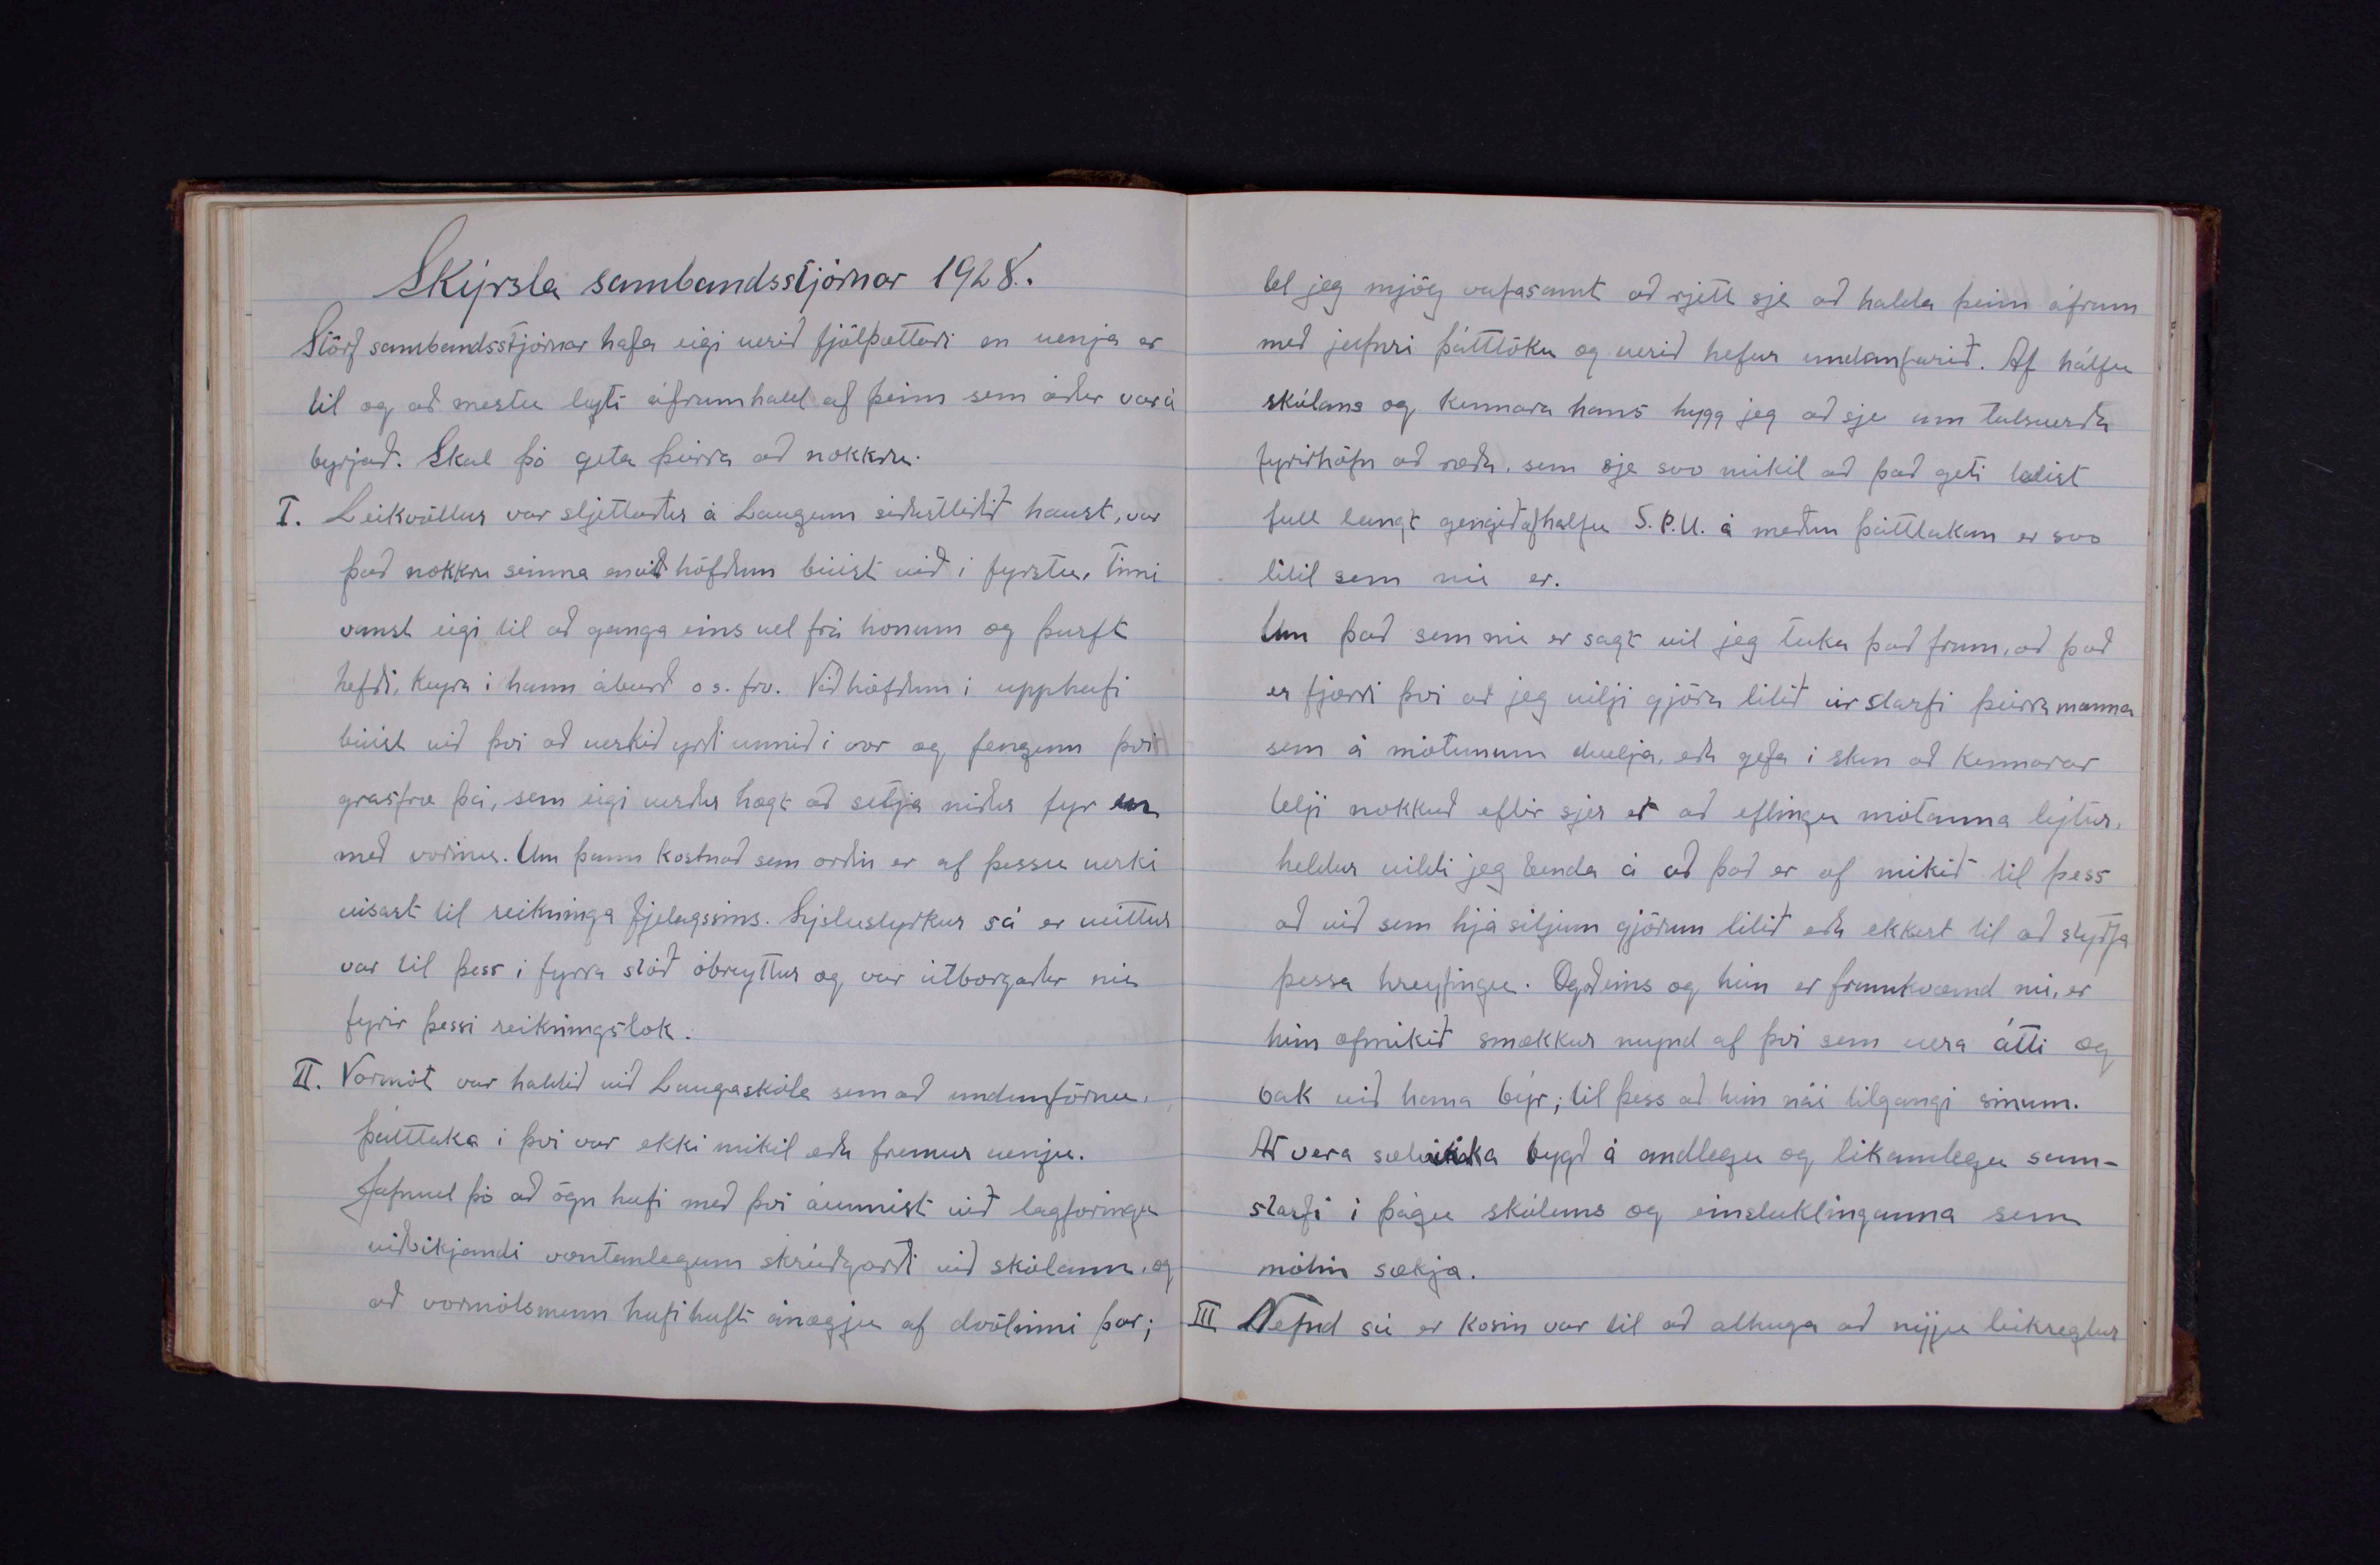 Skýrsla sambandsstjórnar 1928.
Störf sambandsstjórnar hafa eigi verið fjölþættari en venja er
til og að mestu leyti áframhald af þeim sem áður var á
byrjað. Skal þó geta þeirra að nokkru.
I. Leikvöllur var sljettaður á Laugum síðastliðið haust, var
það nokkru seinna en við höfðum búist við í fyrstu, Tími
vanst eigi til að ganga eins vel frá honum og þurft
hefði, keyra í hann áburð o s. frv. Við höfðum í upphafi
búist við því að verkið yrði unnið í vor og fengum því
grasfræ þá, sem eigi verður hægt að setja niður fyr en
með vorinu. Um þann kostnað sem orðin er af þessu verki
vísast til reikninga fjelagssins. Sýslustyrkur sá er veittur
var til þess í fyrra stóð óbreyttur og var útborgaður nú
fyrir þessi reikningslok.
II. Vormót var haldið við Laugaskóla sem að undanförnu,
þátttaka í því var ekki mikil eða fremur venju.
Jafnvel þó að ögn hafi með því áunnist við lagfæringu
viðvíkjandi væntanlegum skrúðgarði við skólann, og
að vormótsmenn hafi haft ánægju af dvölinni þar;
tel jeg mjög vafasamt að rjett sje að halda þeim áfram
með jafnri þátttöku og verið hefur undanfarið. Af hálfu
skólans og kennara hans hygg jeg að sje um talsverða
fyrirhöfn að ræða, sem sje svo mikil að það geti talist
full langt gengið af halfu S.Þ.U. á meðan þátttakan er svo
lítil sem nú er.
Um það sem nú er sagt vil jeg taka það fram, að það
er fjærri því að jeg vilji gjöra lítið úr starfi þeirra manna
sem á mótunum dvelja, eða gefa í skin að kennarar
telji nokkuð eftir sjer er að eflingu mótanna lýtur,
heldur vildi jeg benda á að það er of mikið til þess
að við sem hjá sitjum gjörum lítið eða ekkert til að styðja
þessa hreyfingu. Og eins og hún er framkvæmd nú, er
hún ofmikið smækkuð mynd af því sem vera átti og
bak við hana býr; til þess að hún nái tilgangi sínum.
At vera sæluvika bygð á andlegu og líkamlegu sam-
starfi í þágu skólans og einstaklinganna sem
mótin sækja.
III Nefnd sú er kosin var til að athuga að nýju leikreglur